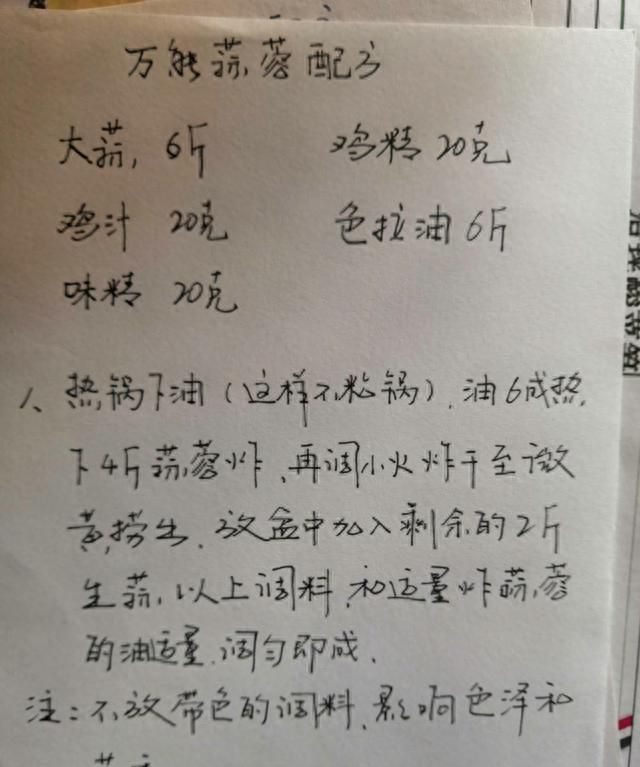 万能蒜蓉配方
大蒜, 6斤 鸡精 20克
鸡汁 20克 色拉油 6斤
味精 20克
1、热锅下油(这样不粘锅), 油6成热,
下4斤蒜蓉炸, 再调小火炸干至微
黄,捞出、放盆中加入剩余的2斤
生蒜, 以上调料, 和适量炸蒜蓉
的油适量, 调匀即成.
注:不放带色的调料, 影响色泽和